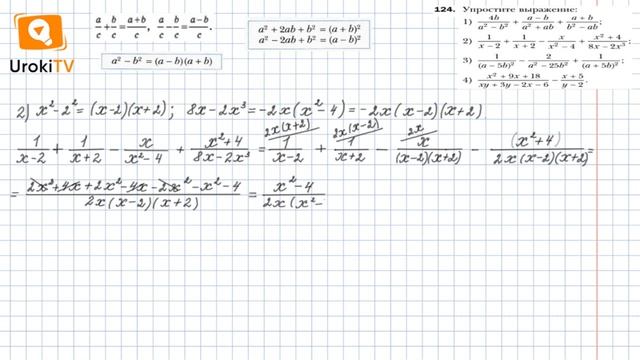 UrokiTV
a/c + b/c = (a+b)/c, a/c − b/c = (a−b)/c.
a² − b² = (a − b)(a + b)
a² + 2ab + b² = (a + b)²
a² − 2ab + b² = (a − b)²
124. Упростите выражение:
1) 4b/(a² − b²) + (a − b)/(a² + ab) + (a + b)/(b² − ab);
2) 1/(x − 2) + 1/(x + 2) − x/(x² − 4) + (x² + 4)/(8x − 2x³);
3) 1/(a − 5b)² − 2/(a² − 25b²) + 1/(a + 5b)²;
4) (x² + 9x + 18)/(xy + 3y − 2x − 6) − (x + 5)/(y − 2).
2) x²−2² = (x−2)(x+2); 8x−2x³ = −2x(x²−4) = −2x(x−2)(x+2)
1/(x−2) + 1/(x+2) − x/(x²−4) + (x²+4)/(8x−2x³) = 2x(x+2) 1/(x−2) + 2x(x−2) 1/(x+2) − 2x x/((x−2)(x+2)) − (x²+4)/(2x(x−2)(x+2)) =
= (2x²+4x+2x²−4x−2x²−x²−4)/(2x(x−2)(x+2)) = (x²−4)/(2x(x²−